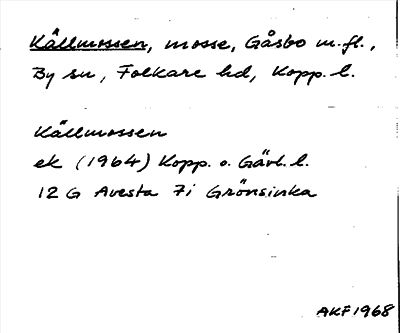 Källmossen, mosse, Gåsbo m.fl.,
By sn, Folkare hd, Kopp. l.
Källmossen
ek (1964) Kopp. o. Gävl. l.
12 G Avesta 7i Grönsinka
AKF 1968